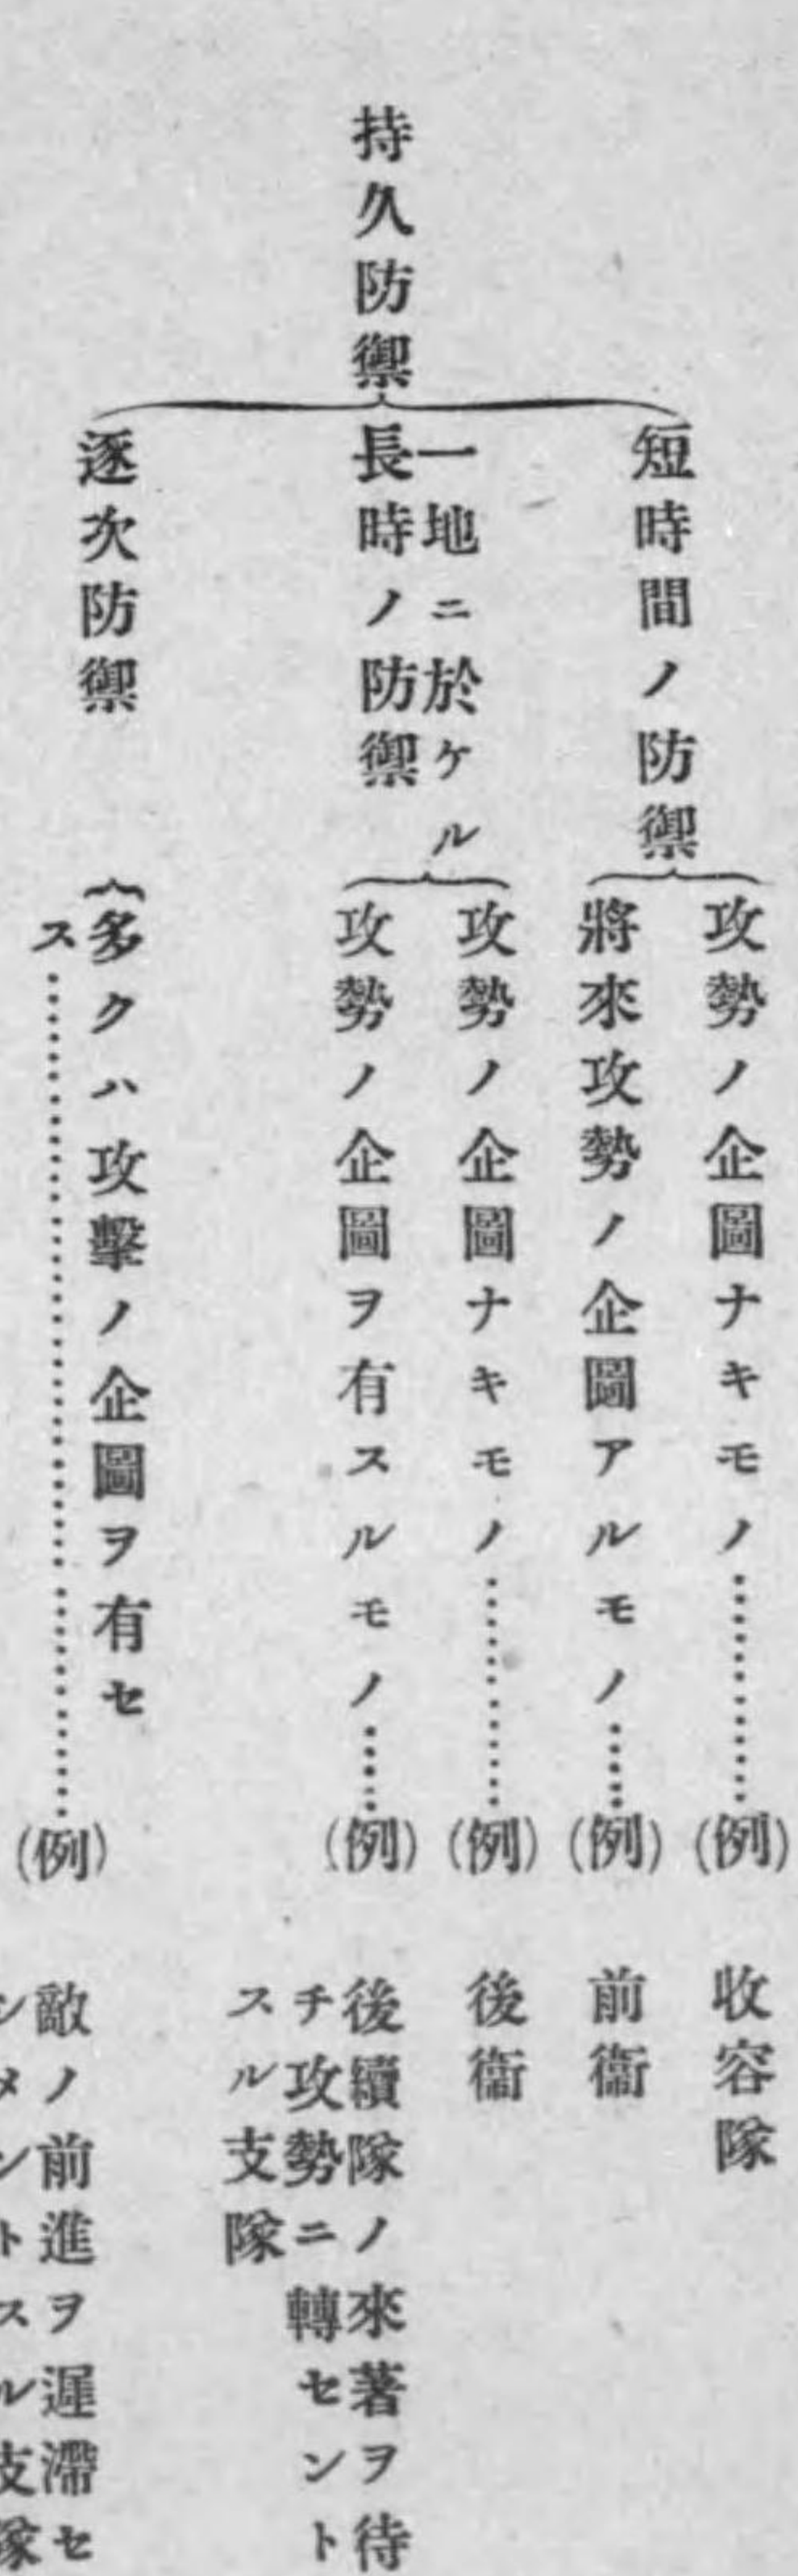 持久防禦
短時間ノ防禦
攻勢ノ企圖ナキモノ…………(例) 收容隊
將來攻勢ノ企圖アルモノ……(例) 前衞
一地ニ於ケル
長時ノ防禦
攻勢ノ企圖ナキモノ…………(例) 後衞
攻勢ノ企圖ヲ有スルモノ……(例) 後續隊ノ來著ヲ待
チ攻勢ニ轉セント
スル支隊
逐次防禦
多クハ攻擊ノ企圖ヲ有セ
ス………………………………(例) 敵ノ前進ヲ遲滯セ
シメントスル支隊